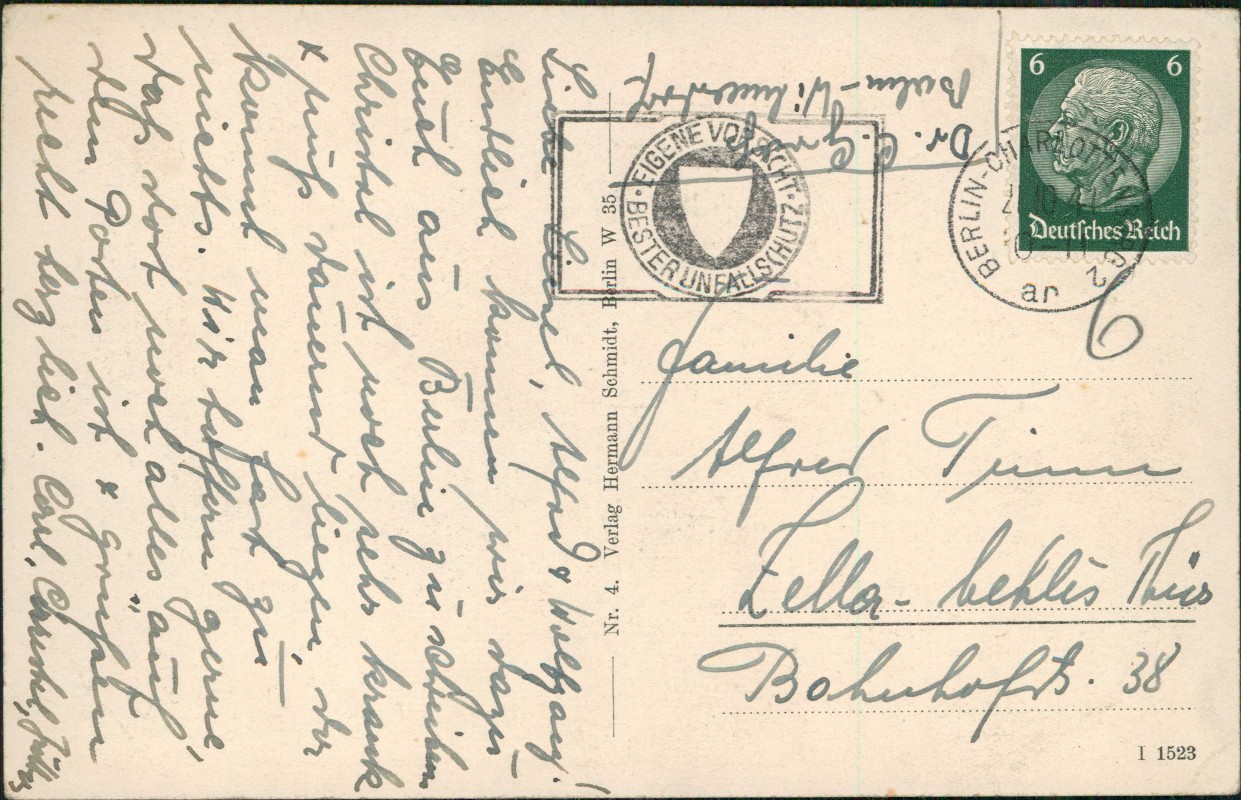 Liebe Liesel, Alfred & Wolfgang!
Endlich kommen wir dazu
Euch aus Berlin zu schreiben
Christel ist noch sehr krank
& muß dauernd liegen, da
kommt man fast zu
nichts. Wir hoffen gerne
daß dort noch alles auf
dem Posten ist & grüßen
recht herzlich. Carl, Christel, Jutta
Nr. 4. Verlag Hermann Schmidt, Berlin W 35
Dr. C.
Berlin-Wilmersdorf
EIGENE VORSICHT · BESTER UNFALLSCHUTZ ·
6 6
Deutsches Reich
BERLIN-CHARLOTTENBURG 2
ar
6
Familie
Alfred Timm
Zella-Mehlis Thür
Bahnhofstr. 38
I 1523